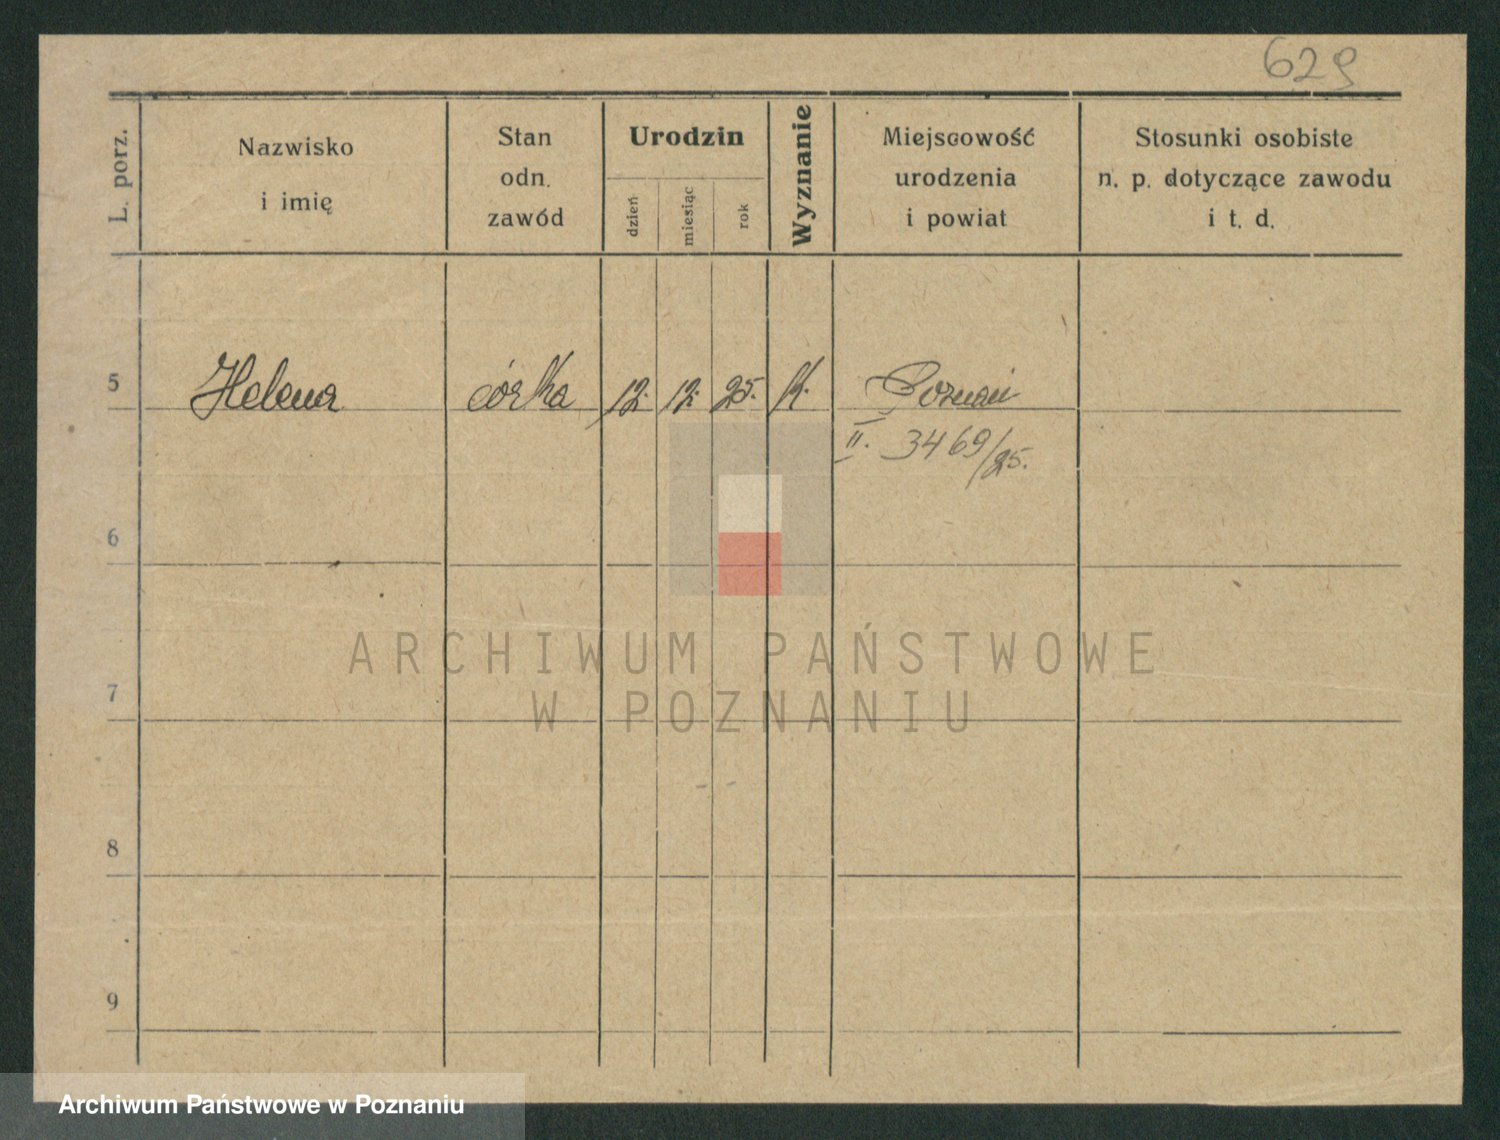 629
L. porz.
Nazwisko
i imię
Stan
odn.
zawód
Urodzin
dzień
miesiąc
rok
Wyznanie
Miejscowość
urodzenia
i powiat
Stosunki osobiste
n. p. dotyczące zawodu
i t. d.
5 Helena córka 12. 12. 25. K. Poznań
II. 3469/25.
6
7
8
9
ARCHIWUM PAŃSTWOWE
W POZNANIU
Archiwum Państwowe w Poznaniu